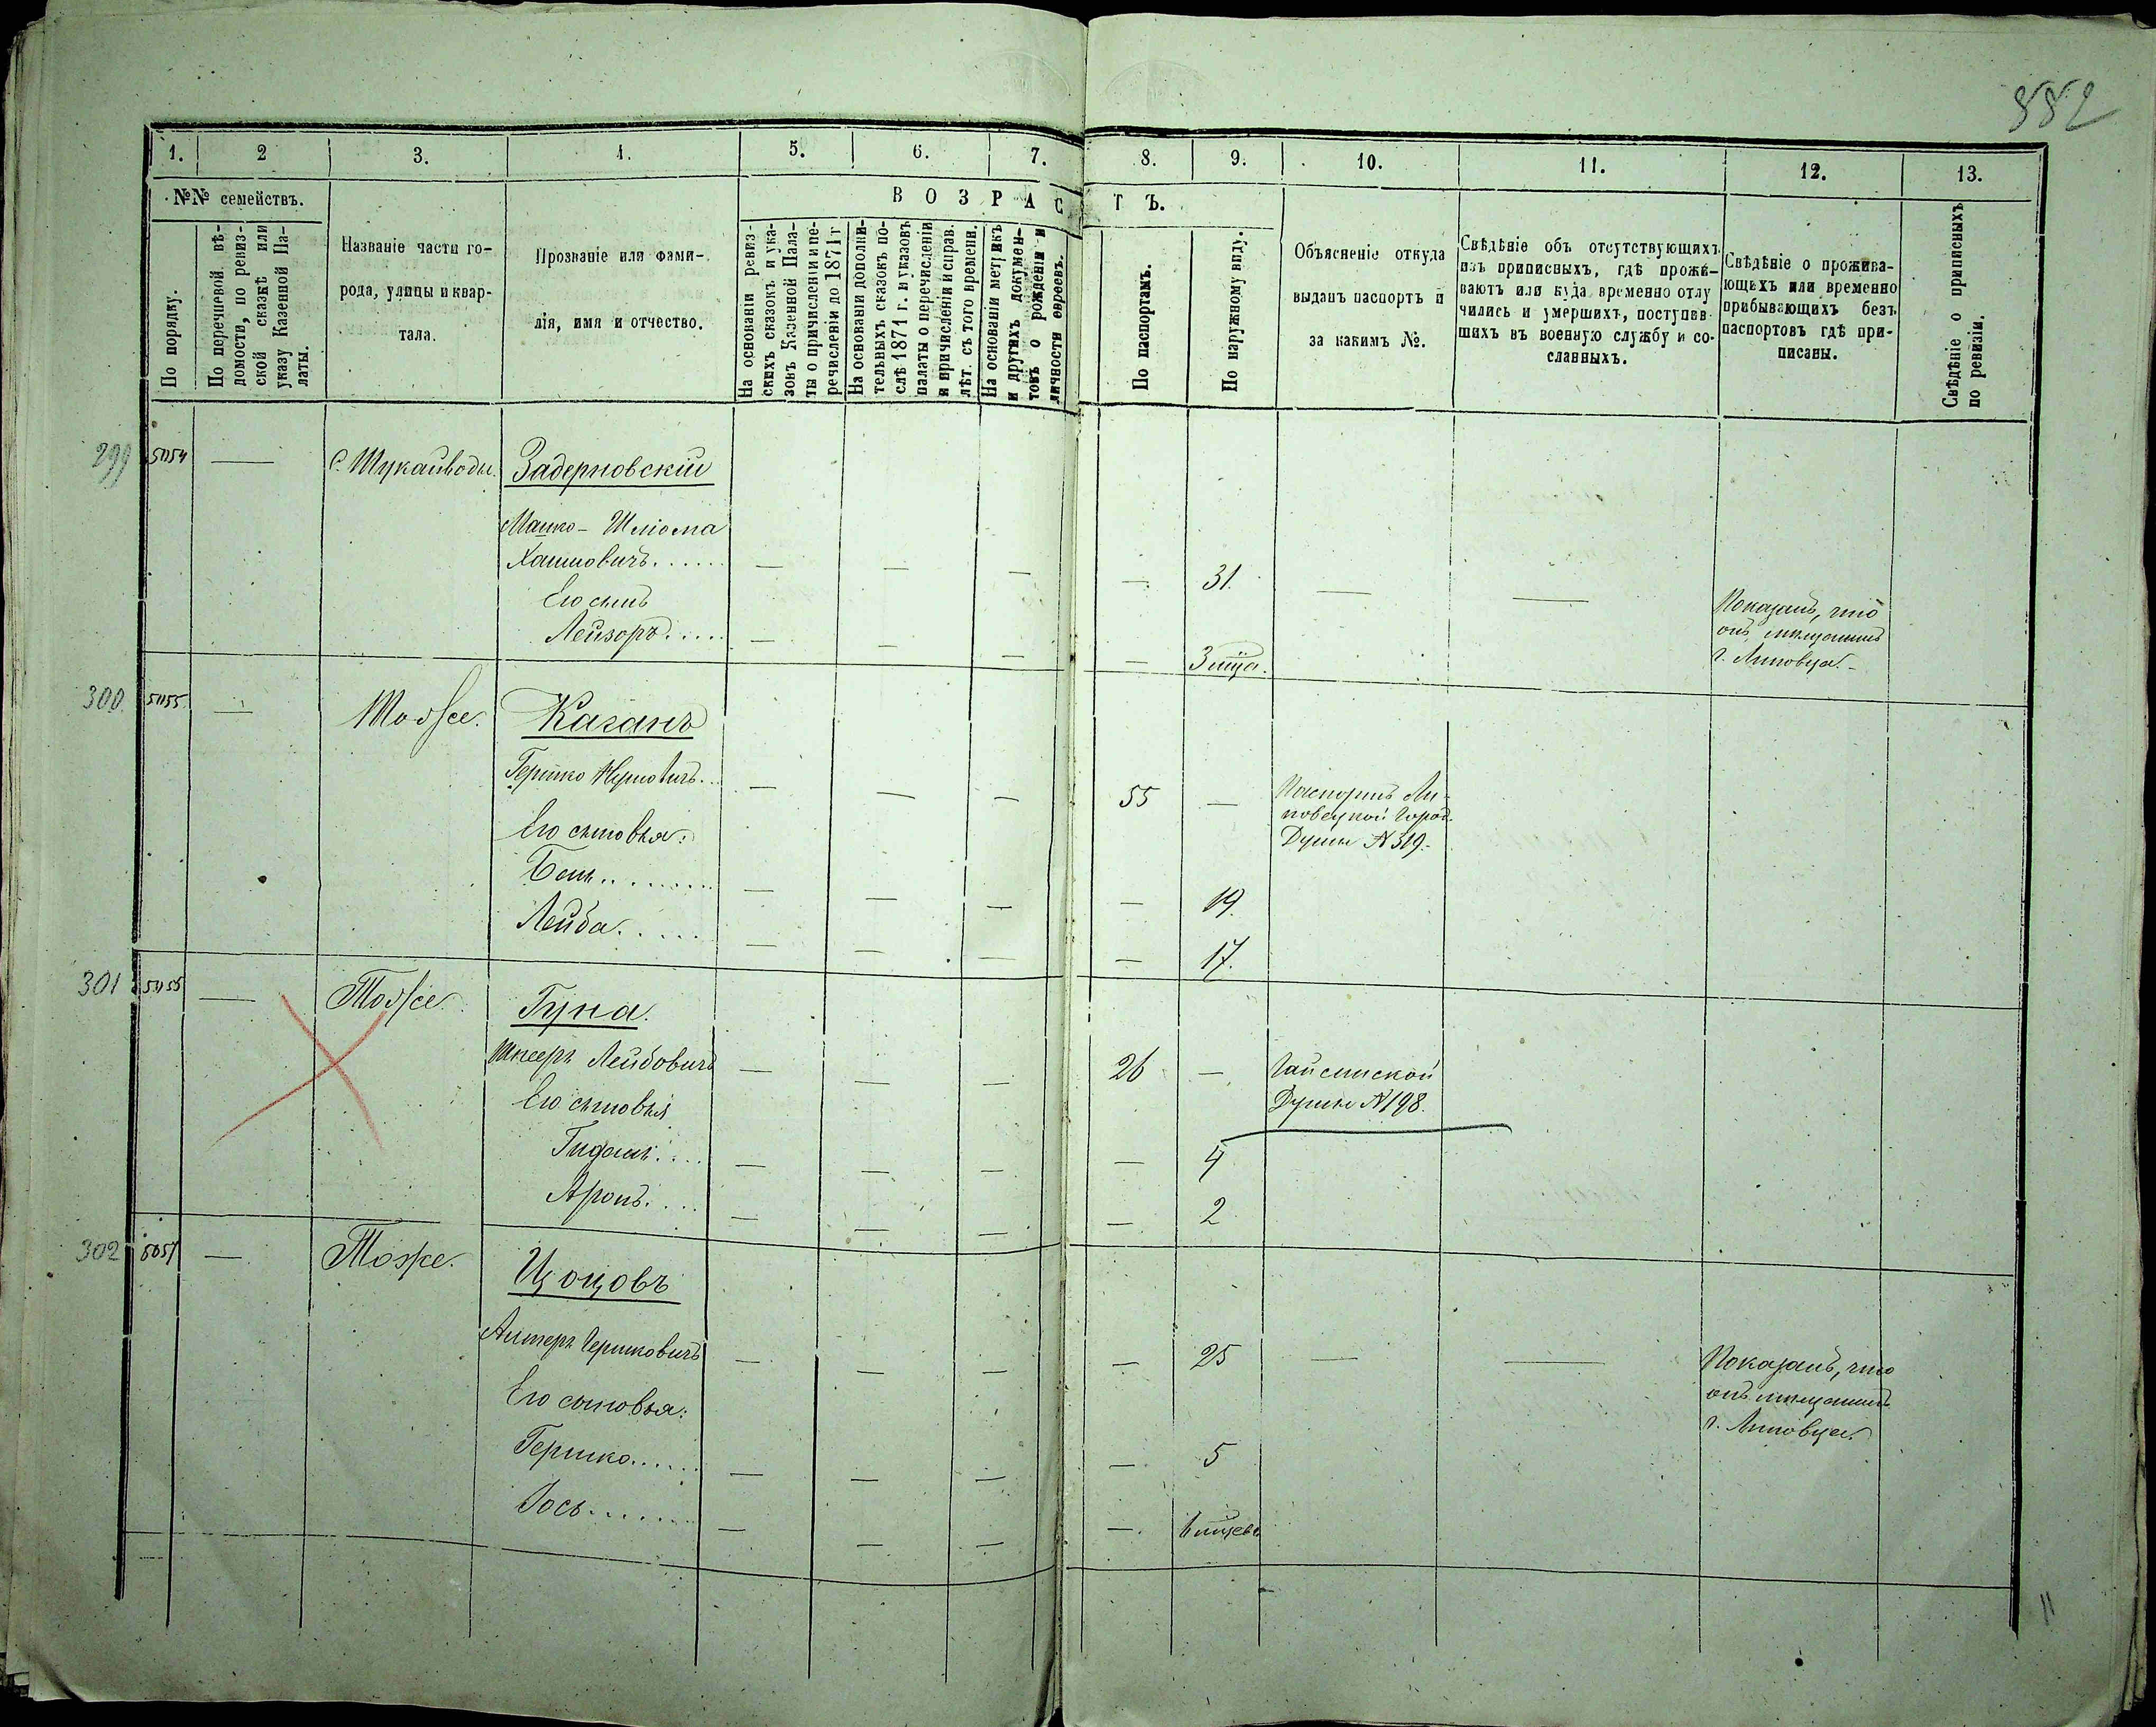 552
1. 2 3. 4. 5. 6. 7. 8. 9. 10. 11. 12. 13.
№№ семействъ.
По порядку.
По перечневой вѣ-
домости, по ревиз-
ской сказкѣ или
указу Казенной Па-
латы.
Названіе части го-
рода, улицы и квар-
тала.
Прозваніе или фами-
лія, имя и отчество.
ВОЗРАСТЪ.
На основаніи ревиз-
скихъ сказокъ и ука-
зовъ Казенной Пала-
ты о причисленіи и пе-
речисленіи до 1871 г
На основаніи дополни-
тельныхъ сказокъ по-
слѣ 1871 г. и указовъ
палаты о перечисленіи
и причисленіи и справ.
лѣт. съ того времени.
На основаніи метрикъ
и другихъ докумен-
товъ о рожденіи и
личности евреевъ.
По паспортамъ.
По наружному виду.
Объясненіе откуда
выданъ паспортъ и
за какимъ №.
Свѣдѣніе объ отсутствующихъ
изъ приписныхъ, гдѣ прожи-
ваютъ или куда временно отлу
чились и умершихъ, поступив-
шихъ въ военную службу и со-
сланныхъ.
Свѣдѣніе о прожива-
ющихъ или временно
прибывающихъ безъ
паспортовъ гдѣ при-
писаны.
Свѣдѣніе о приписныхъ
по ревизіи.
299 — с. Шукайводы Задерновскій
Машко-Шлiома
Хаимовичъ...... — — — — 31. — —
Его сынъ
Лейзоръ..... — — — — 3 мѣ.
Показалъ, что
онъ мѣщанинъ
г. Липовца.
300 — Тоже. Каганъ
Гершко Нухмовичъ... — — — 55 —
Паспортъ Ли-
повецкой Город.
Думы № 319.
Его сыновья:
Бень......... — — — — 19.
Лейба...... — — — — 17.
301 — Тоже. Гуна.
Лейбовичъ — — — 26 —
Гайсинской
Думы № 198.
Его сыновья
Гидаль.... — — — — 4
Аронъ.... — — — — 2
302 5057 — Тоже. Цоцовъ
Альтеръ Гершковичъ — — — — 25 — —
Показалъ, что
онъ мѣщанинъ
г. Липовца.
Его сыновья:
Гершко...... — — — — 5
Іось....... — — — —